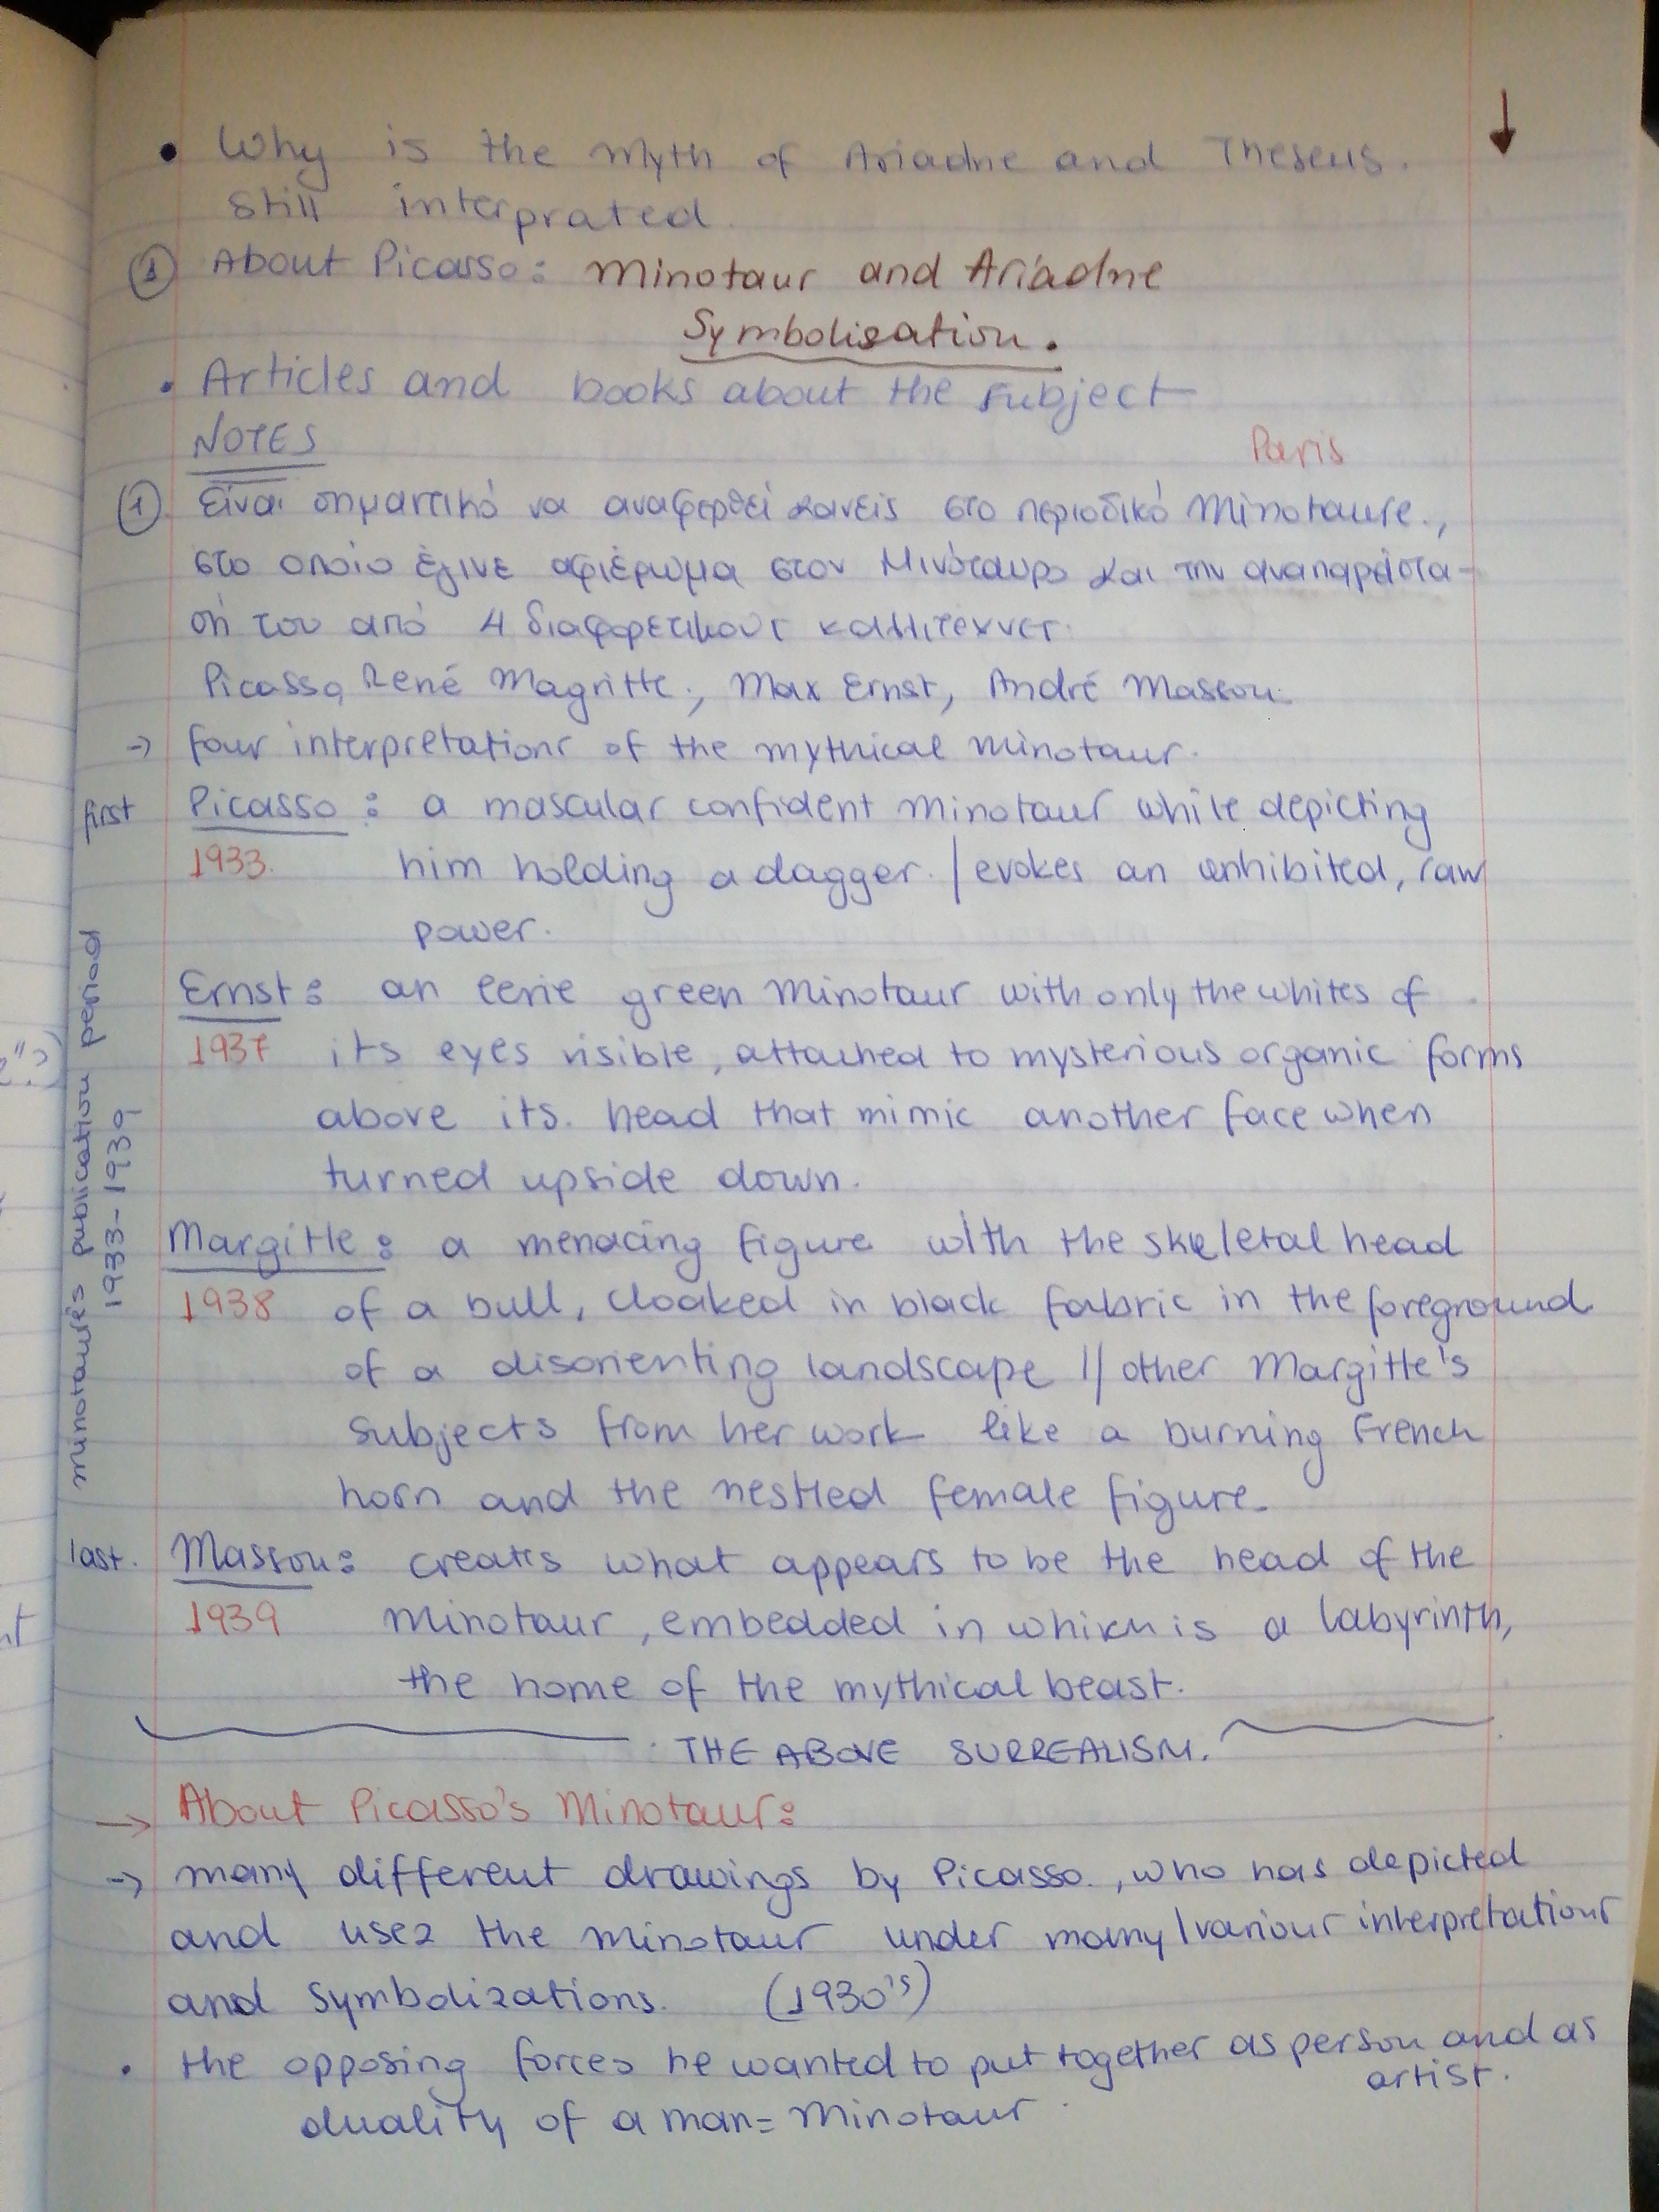 • Why is the Myth of Ariadne and Theseus.
still interprated.
① About Picasso: Minotaur and Ariadne
Symbolisation.
• Articles and books about the subject
NOTES
Paris
① Είναι σημαντικό να αναφερθεί κανείς στο περιοδικό Minotaure.,
στο οποίο έγινε αφιέρωμα στον Μινόταυρο και την αναπαράστα-
σή του από 4 διαφορετικούς καλλιτέχνες.
Picasso, René Magritte., Max Ernst, André Masson.
→ four interpretations of the mythical minotaur.
first Picasso: a mascular confident minotaur while depicting
1933. him holding a dagger. / evokes an unhibited, raw
power.
Ernst: an eerie green minotaur with only the whites of
1937 its eyes visible, attached to mysterious organic forms
above its. head that mimic another face when
turned upside down.
Margitte: a menacing figure with the skeletal head
1938 of a bull, cloaked in black fabric in the foreground
of a disorienting landscape // other Margitte's
subjects from her work like a burning French
horn and the nestled female figure.
last. Masson: creates what appears to be the head of the
1939 minotaur, embedded in which is a labyrinth,
the home of the mythical beast.
THE ABOVE SURREALISM.
minotaure's publication period
1933-1939
→ About Picasso's Minotaur:
→ many different drawings by Picasso., who has depicted
and used the minotaur under many/various interpretations
and symbolizations. (1930's)
• the opposing forces he wanted to put together as person and as
artist.
duality of a man = Minotaur.